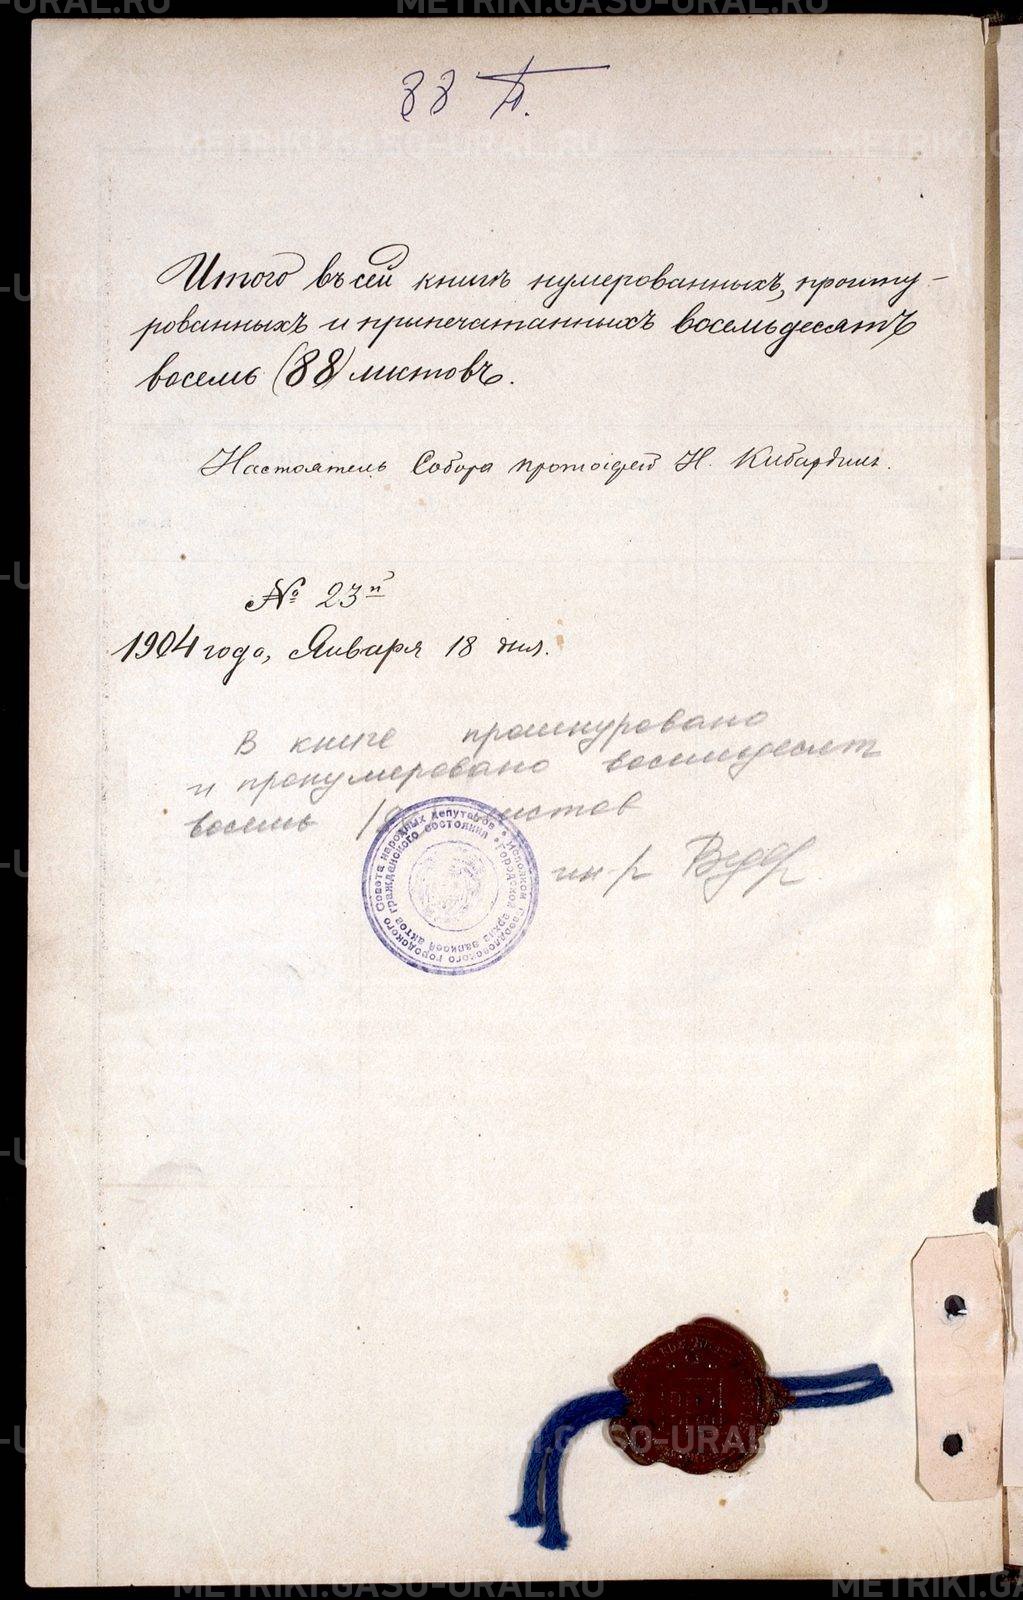 88
Итого въ сей книгѣ нумерованныхъ, прошну-
рованныхъ и припечатанныхъ восемьдесятъ
восемь (88) листовъ.
Настоятель Собора протоіерей Н. Кибардинъ.
№ 23й
1904 года, Января 18 дня.
В книге прошнуровано
и пронумеровано восемьдесят
восемь листов
Исполком Свердловского городского Совета народных депутатов
Городской архив записей актов гражданского состояния
METRIKI.GASO-URAL.RU